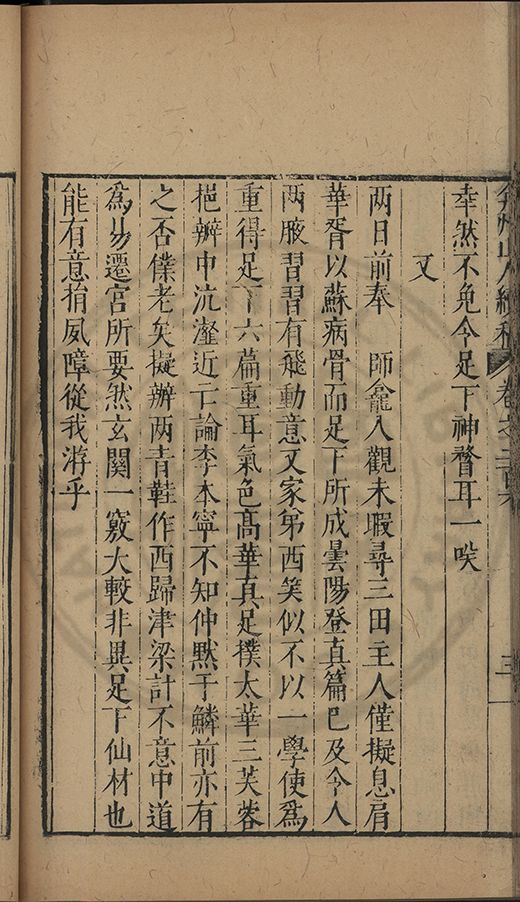 弇州山人續稿 卷之二百
三
幸然不免令足下神瞀耳一咲
又
两日前奉 師龕入觀未暇尋三田主人僅擬息肩
華胥以蘇病骨而足下所成曇陽登真篇已及令人
两腋習習有飛動意又家弟西笑似不以一學使爲
重得足下六萹重耳氣色髙華真足撲太華三芙蓉
挹瓣中沆瀣近于論李本寧不知仲黙于鱗前亦有
之否僕老矣擬辦两青鞋作西歸津梁計不意中道
爲易遷宮所要然玄關一竅大較非異足下仙材也
能有意捐風嶂從我游乎